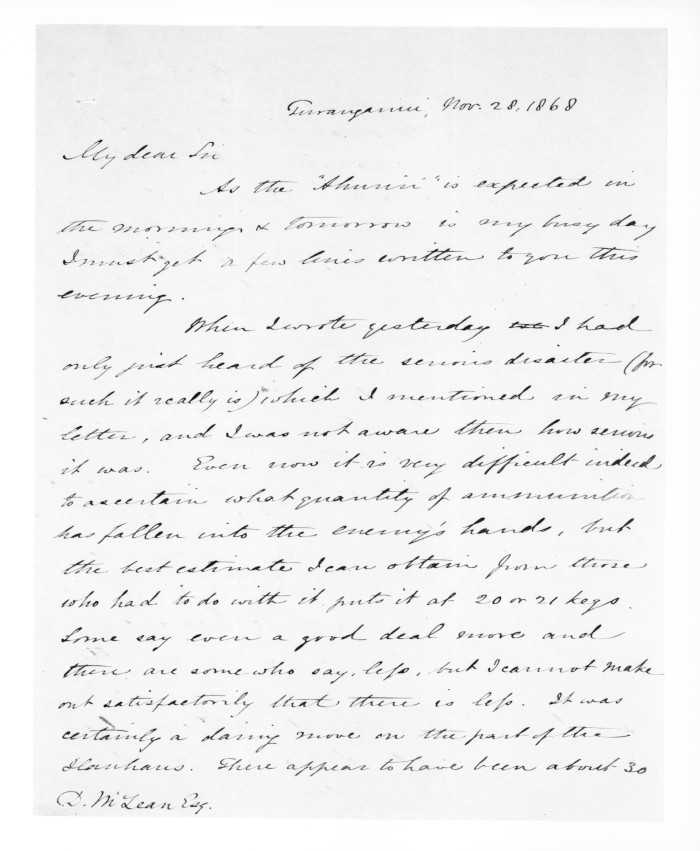 Turanganui, Nov. 28, 1868
My dear Sir
As the "Ahuriri" is expected in
the morning & tomorrow is my busy day
I must get a few lines written to you this
evening.
When I wrote yesterday I had
only just heard of the serious disaster (for
such it really is) which I mentioned in my
letter, and I was not aware then how serious
it was. Even now it is very difficult indeed
to ascertain what quantity of ammunition
has fallen into the enemy's hands, but
the best estimate I can obtain from those
who had to do with it puts it at 20 or 21 kegs.
Some say even a good deal more and
there are some who say, less, but I cannot make
out satisfactorily that there is less. It was
certainly a daring move on the part of the
Hauhaus. There appear to have been about 30
D. McLean Esq.